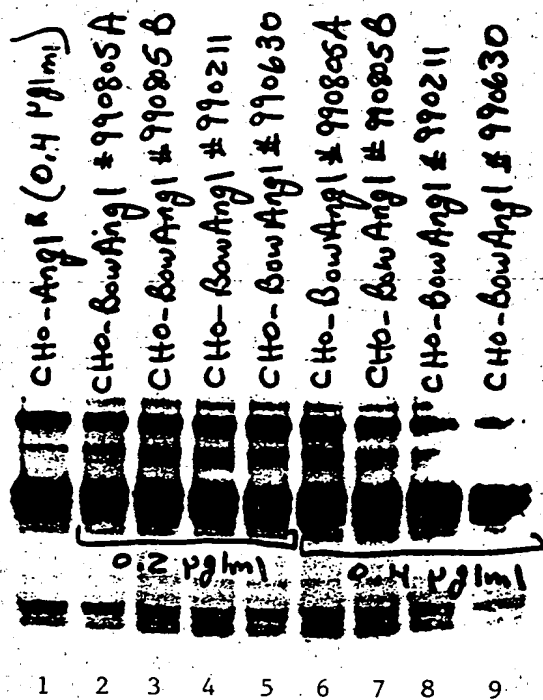 CHO-Ang1ᴿ (0.4 µg/ml)
CHO-BowAng1 #990805A
CHO-BowAng1 #990805B
CHO-BowAng1 #990211
CHO-BowAng1 #990630
CHO-BowAng1 #990805A
CHO-BowAng1 #990805B
CHO-BowAng1 #990211
CHO-BowAng1 #990630
0.2 µg/ml 0.4 µg/ml
1 2 3 4 5 6 7 8 9